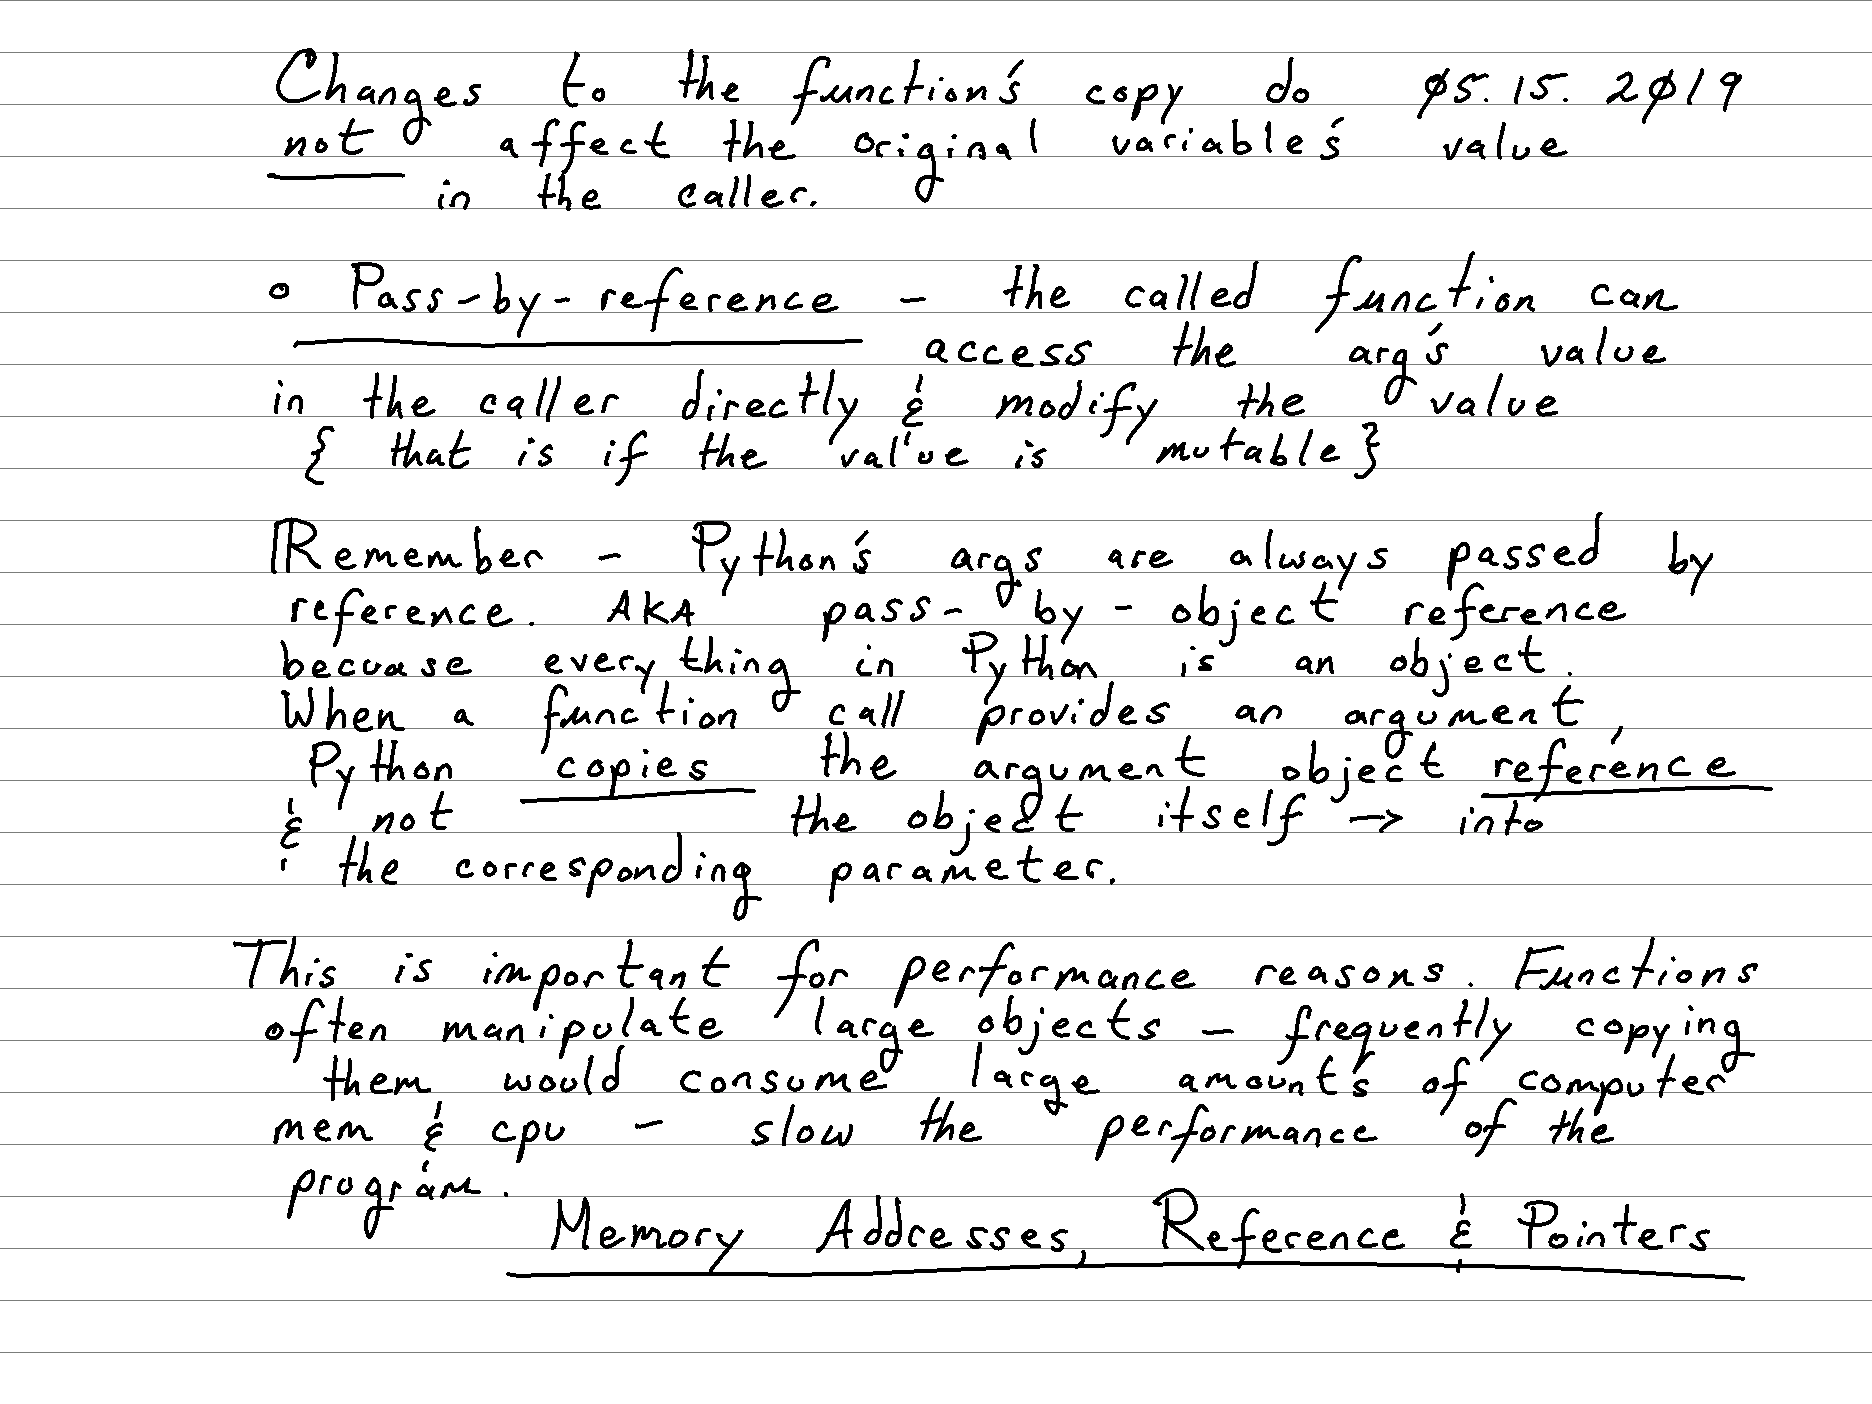 Changes to the function's copy do ø5.15.2ø19
not affect the original variable's value
in the caller.
o Pass-by-reference - the called function can
access the arg's value
in the caller directly & modify the value
{ that is if the value is mutable }
Remember - Python's args are always passed by
reference. AKA pass-by-object reference
becuase everything in Python is an object.
When a function call provides an argument,
Python copies the argument object reference
& not the object itself → into
the corresponding parameter.
This is important for performance reasons. Functions
often manipulate large objects - frequently copying
them would consume large amounts of computer
mem & cpu - slow the performance of the
program.
Memory Addresses, Reference & Pointers